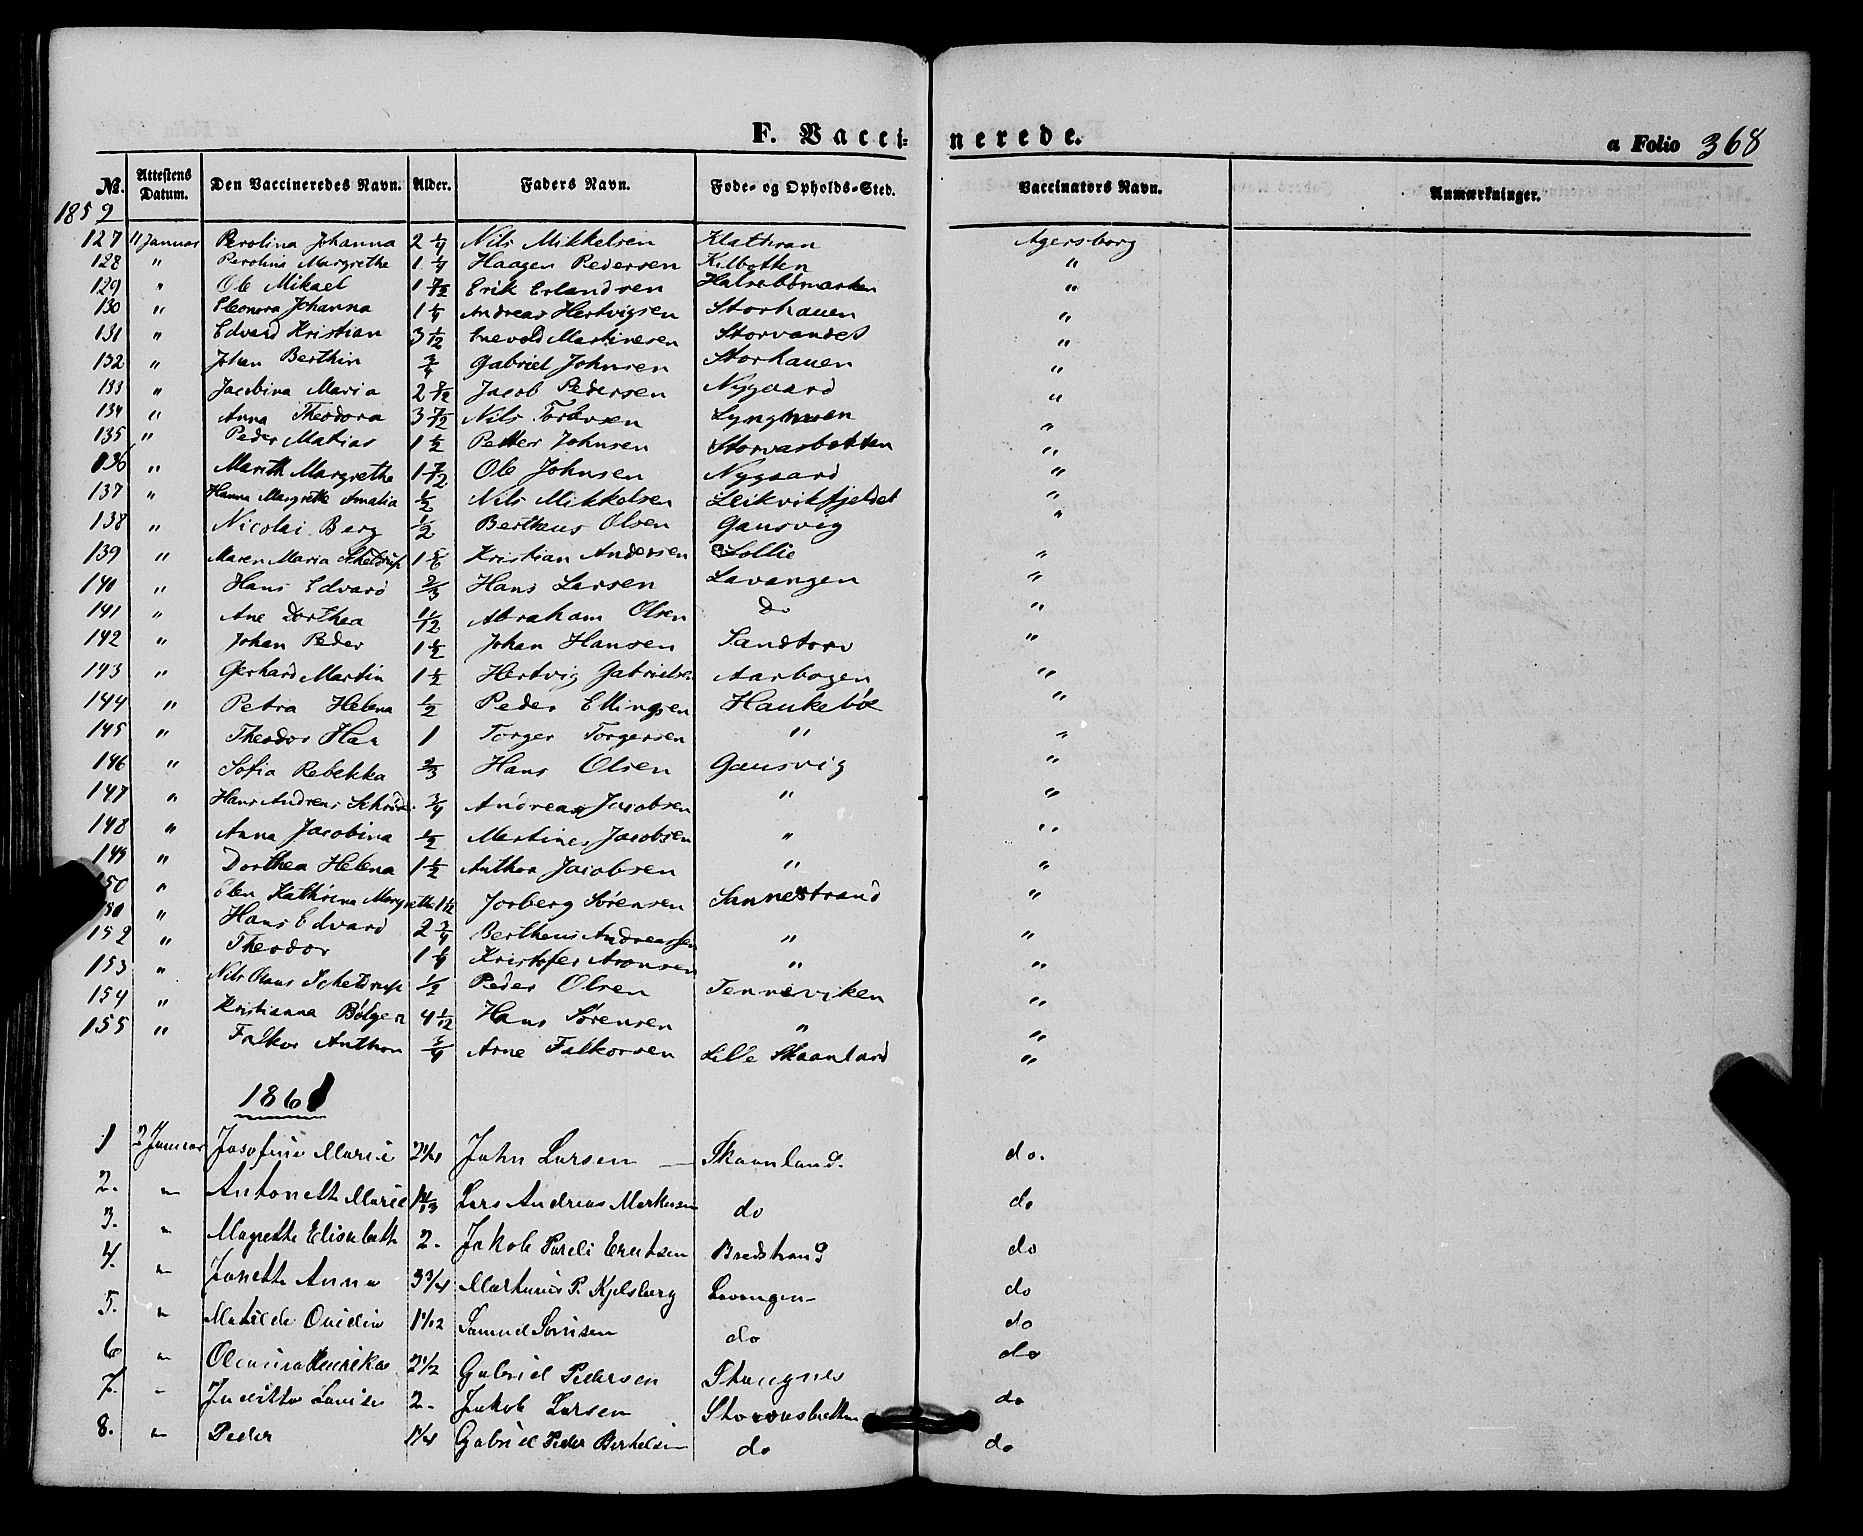 F. Vaccinerede.
a Folio 368
No. Attestens Datum. Den Vaccineredes Navn. Alder. Faders Navn. Føde- og Opholds-Sted. Vaccinators Navn. Anmærkninger.
1859
127 11 Januar Perolina Johanna 2 1/4 Nils Mikkelsen Klathran Agersborg
128 " Perolina Margrethe 1 1/4 Haagen Pedersen Kilbotten "
129 " Ole Mikael 1 7/12 Erik Erlandsen Halsebömarken "
130 " Eleonora Johanna 1 1/4 Andreas Hertvigsen Storhauen "
131 " Edvard Kristian 3 1/12 Enevold Martinesen Storvandet "
132 " Johan Berthin 3/4 Gabriel Johnsen Storhauen "
133 " Jacobina Maria 2 8/12 Jacob Pedersen Nygaard "
134 " Anna Theodora 3 7/12 Nils Torbersen Lynghauen "
135 " Peder Matias 1 1/2 Petter Johnsen Storvasbotten "
136 " Marith Margrethe 1 7/12 Ole Johnsen Nygaard "
137 " Hanna Margrethe Amalia 1/2 Nils Mikkelsen Leikvikfjeldet "
138 " Nicolai Berg 1/2 Bertheus Olsen Gausvig "
139 " Maren Maria Scheldrup 1 5/6 Kristian Andersen Sollie "
140 " Hans Edvard 2/3 Hans Larsen Lavangen "
141 " Ane Dorthea 11/12 Abraham Olsen do "
142 " Johan Peder 1 1/2 Johan Hansen Sandtorv "
143 " Gerhard Martin 1 1/2 Hertvig Gabrielsen Aarbogen "
144 " Petra Helena 1/2 Peder Ellingsen Haukebøe "
145 " Theodor Haa 1 Torger Torgersen " "
146 " Sofia Rebekka 2/3 Hans Olsen Gausvig "
147 " Hans Andreas Schrøder 3/4 Andreas Jacobsen " "
148 " Anna Jacobina 1/2 Martines Jacobsen " "
149 " Dorthea Helena 1 1/2 Anthon Jacobsen " "
150 " Elen Kathrina Margrethe 1 1/2 Jorberg Sørensen Sannestrand "
151 " Hans Edvard 2 3/4 Bertheus Andreassen " "
152 " Theodor 1 1/4 Kristofer Aronsen " "
153 " Nils Claus Scheldrup 1/2 Peder Olsen Tenneviken "
154 " Kristianna Bølgen 4 1/12 Hans Sørensen " "
155 " Falkor Anthon 3/4 Arne Falkorsen Lille Skaanland "
1861
1 2 Januar Josefine Marie 2 1/4 John Larsen Skaanland. do.
2. " Antonette Marie 1 Lars Andreas Markusen do do
3. " Magrethe Elisabeth 2. Jakob Pareli Eriksen Bredstrand do
4. " Janette Anna 3 3/4 Martinus P. Kjelsberg Lavangen do
5. " Matilde Ovidia 1 1/12 Samuel Sørrisen do do
6 " Olevina Henrika 2 1/2 Gabriel Pedersen Stangnes do
7. " Juditta Lovise 2. Jakob Larsen Storvasbotten do
8. " Peder 1 1/4 Gabriel Peder Berthelsen do do